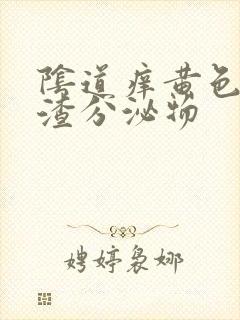 陰道痒黄色
渣分泌物
娉婷袅娜